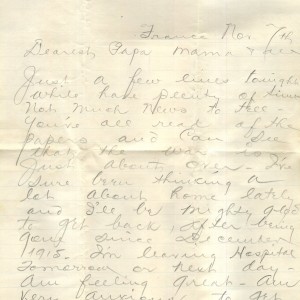 France Nov 7th
Dearest Papa Mama &
Just a few lines tonight
while have plenty of time
Not Much News to tell -
You've all read of the
papers and can see
that the war is
Just about over - I'm
sure been thinking a
lot about home lately
and I'll be mighty glad
to get back, after being
gone since December
1915 - I'm leaving Hospital
Tomorrow or next day -
Am feeling great - Am
very anxious to get